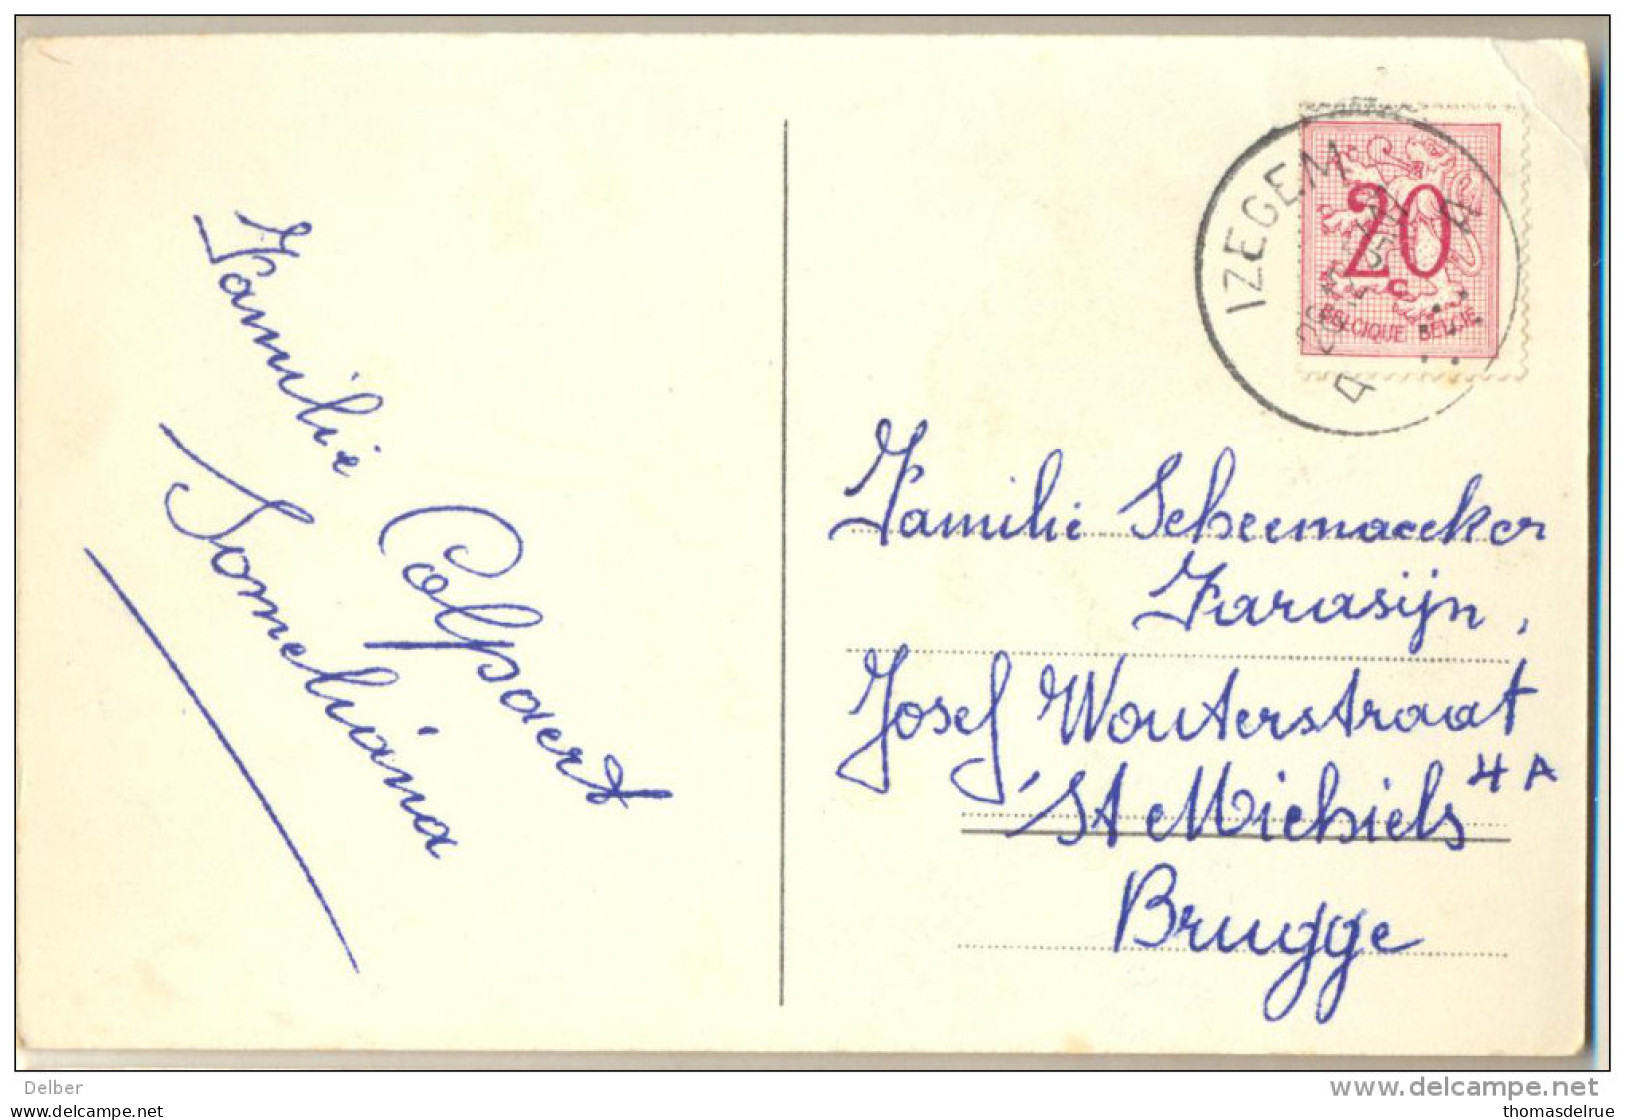 Familie Colpaert
Tomelliána
IZEGEM
20
c
BELGIQUE BELGIË
Familie Scheemaecker
Farasijn,
Josef Wouterstraat
4A
St Michiels
Brugge
Delber
www.delcampe.net
thomasdelrue